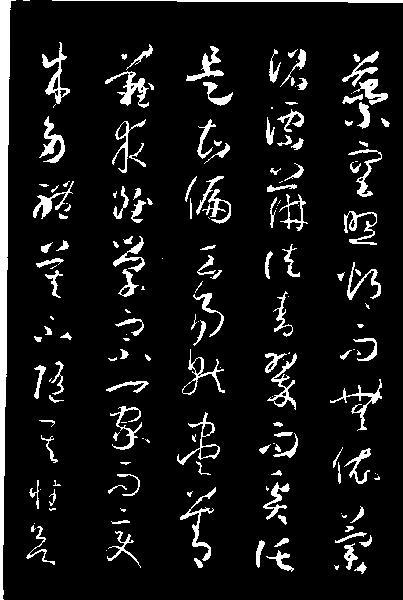 蘂空照灼而無依蘭
沼漂蓱徒青翠而奚託
是知偏工易就盡善
難求雖學宗一家而變
成多體莫不隨其性欲